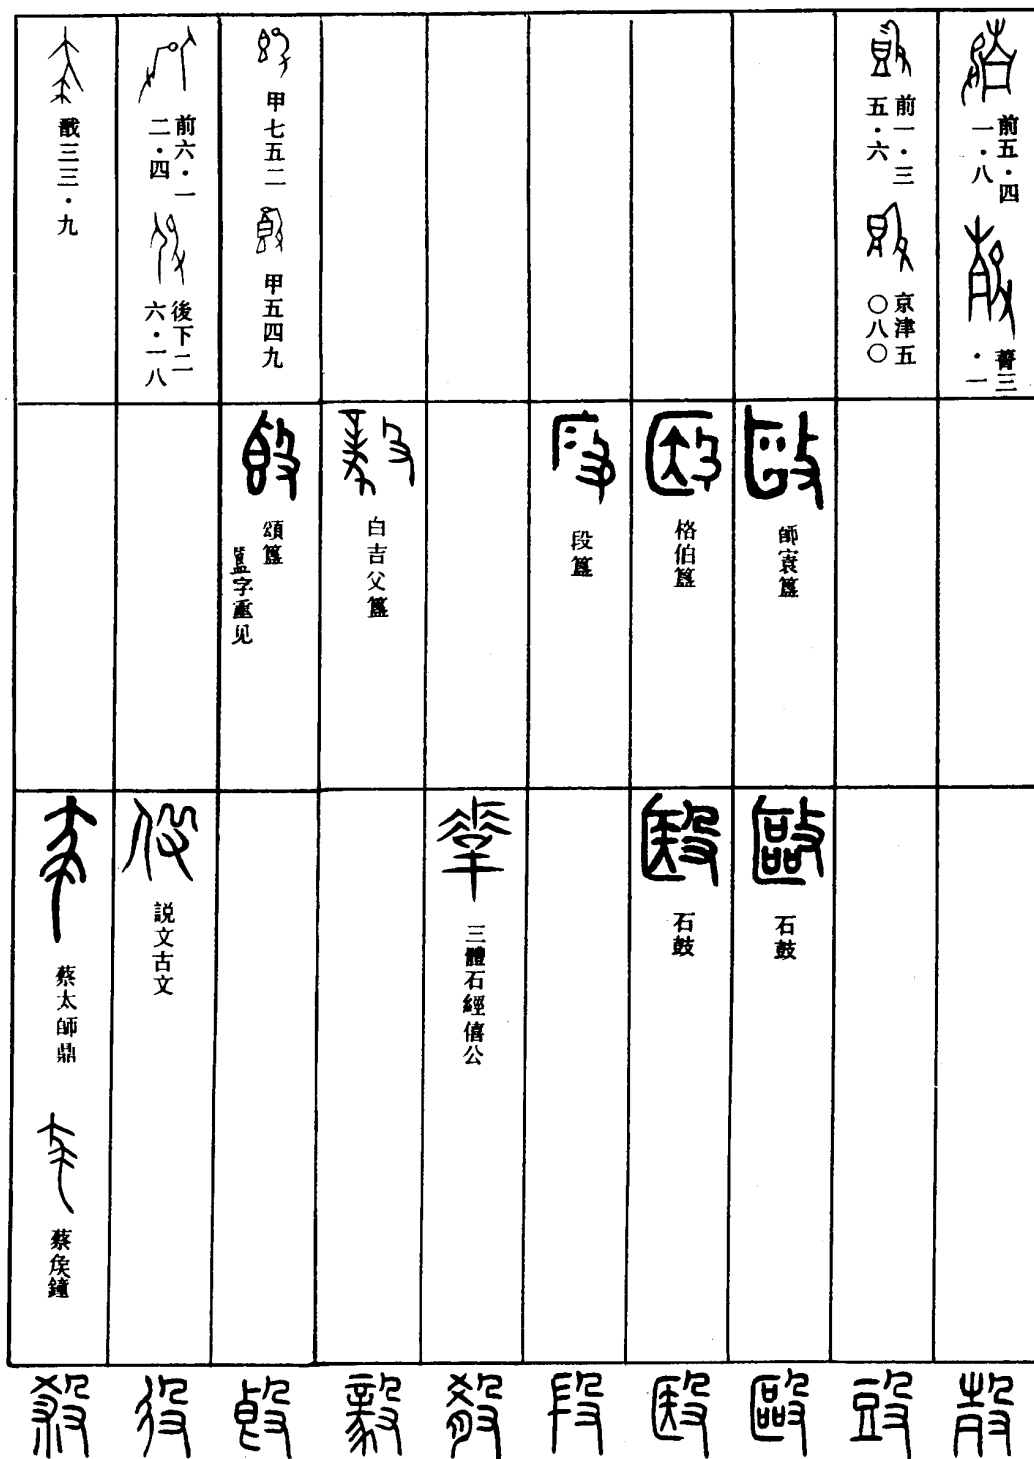 前五·四
一·八
菁三
·一
㱿
前一·三
五·六
京津五
〇八〇
師㝨簋
石鼓
毆
格伯簋
石鼓
殹
段簋
段
三體石經僖公
殽
白吉父簋
毅
甲七五二
甲五四九
頌簋
簋字重见
𣪘
前六·一
二·四
後下二
六·一八
説文古文
役
戩三三·九
蔡太師鼎
蔡侯鐘
殺